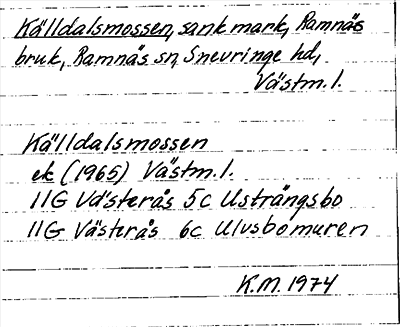 Källdalsmossen, sank mark, Ramnäs
bruk, Ramnäs sn, Snevringe hd,
Västm.l.
Källdalsmossen
ek (1965) Västm.l.
11G Västerås 5c Usträngsbo
11G Västerås 6c Ulvsbomuren
K.M. 1974